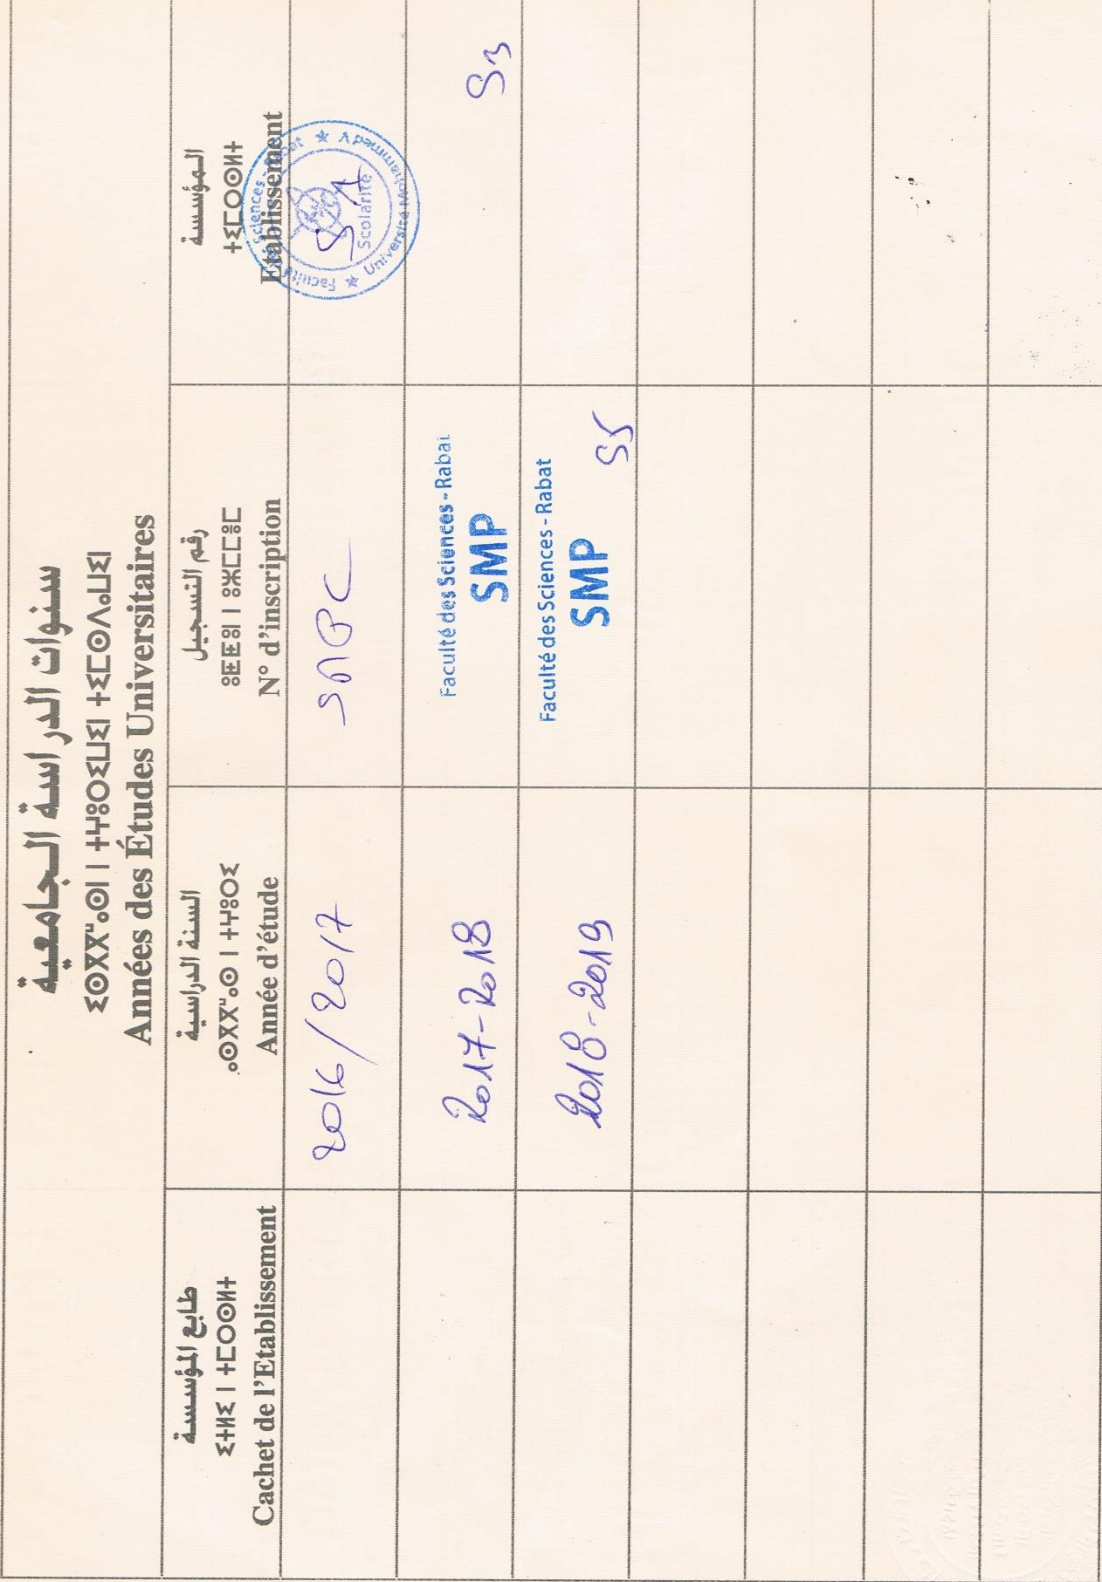 سنوات الدراسة الجامعية
ⵉⵙⴳⴳⵯⴰⵙⵏ ⵏ ⵜⵖⵓⵔⵉⵡⵉⵏ ⵜⵉⵎⵙⴷⴰⵡⵉⵏ
Années des Études Universitaires
طابع المؤسسة
ⵉⵜⵍⵉ ⵏ ⵜⵎⵔⵙⵍⵜ
Cachet de l'Etablissement
السنة الدراسية
ⴰⵙⴳⴳⵯⴰⵙ ⵏ ⵜⵖⵓⵔⵉ
Année d'étude
رقم التسجيل
ⵓⵟⵟⵓⵏ ⵏ ⵓⵣⵎⵎⵓⵎ
N° d'inscription
المؤسسة
ⵜⵉⵎⵔⵙⵍⵜ
Etablissement
2016/2017
SMPC
S1
Faculté des Sciences - Rabat ★ Université Mohammed V ★
Scolarité
2017-2018
Faculté des Sciences - Rabat
SMP
S3
2018-2019
Faculté des Sciences - Rabat
SMP
S5